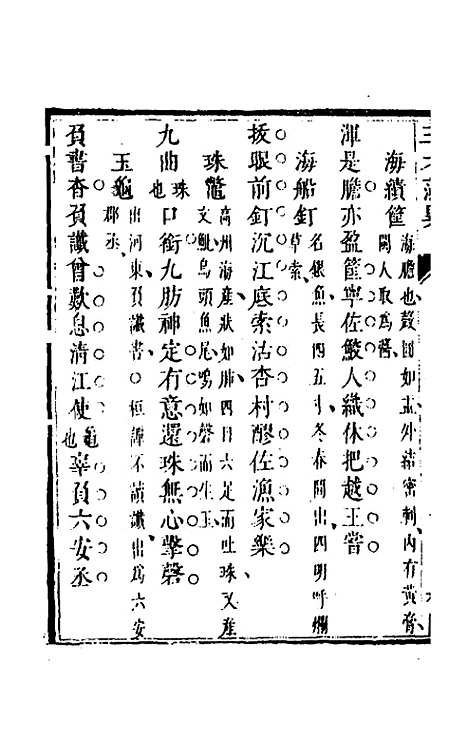 海繢筐 海膽也殼圓如盂外結密刺內有黃膏
閩人取爲醬
渾是膽亦盈筐寧佐鮫人織休把越王嘗
海船釘 名銀魚長四五寸冬春間出四明呼爛
草索
拔眼前釘沉江底索沽杏村醪佐漁家樂
珠鼈 高州海產狀如肺四目六足而吐珠又產
文魮鳥頭魚尾鳴如磬而生玉
九曲珠也口銜九肋神定有意還珠無心擊磬
玉龜 出河東負讖書○桓譚不讀讖出爲六安
郡丞
負書杳負讖曾歎息清江使龜也辜負六安丞